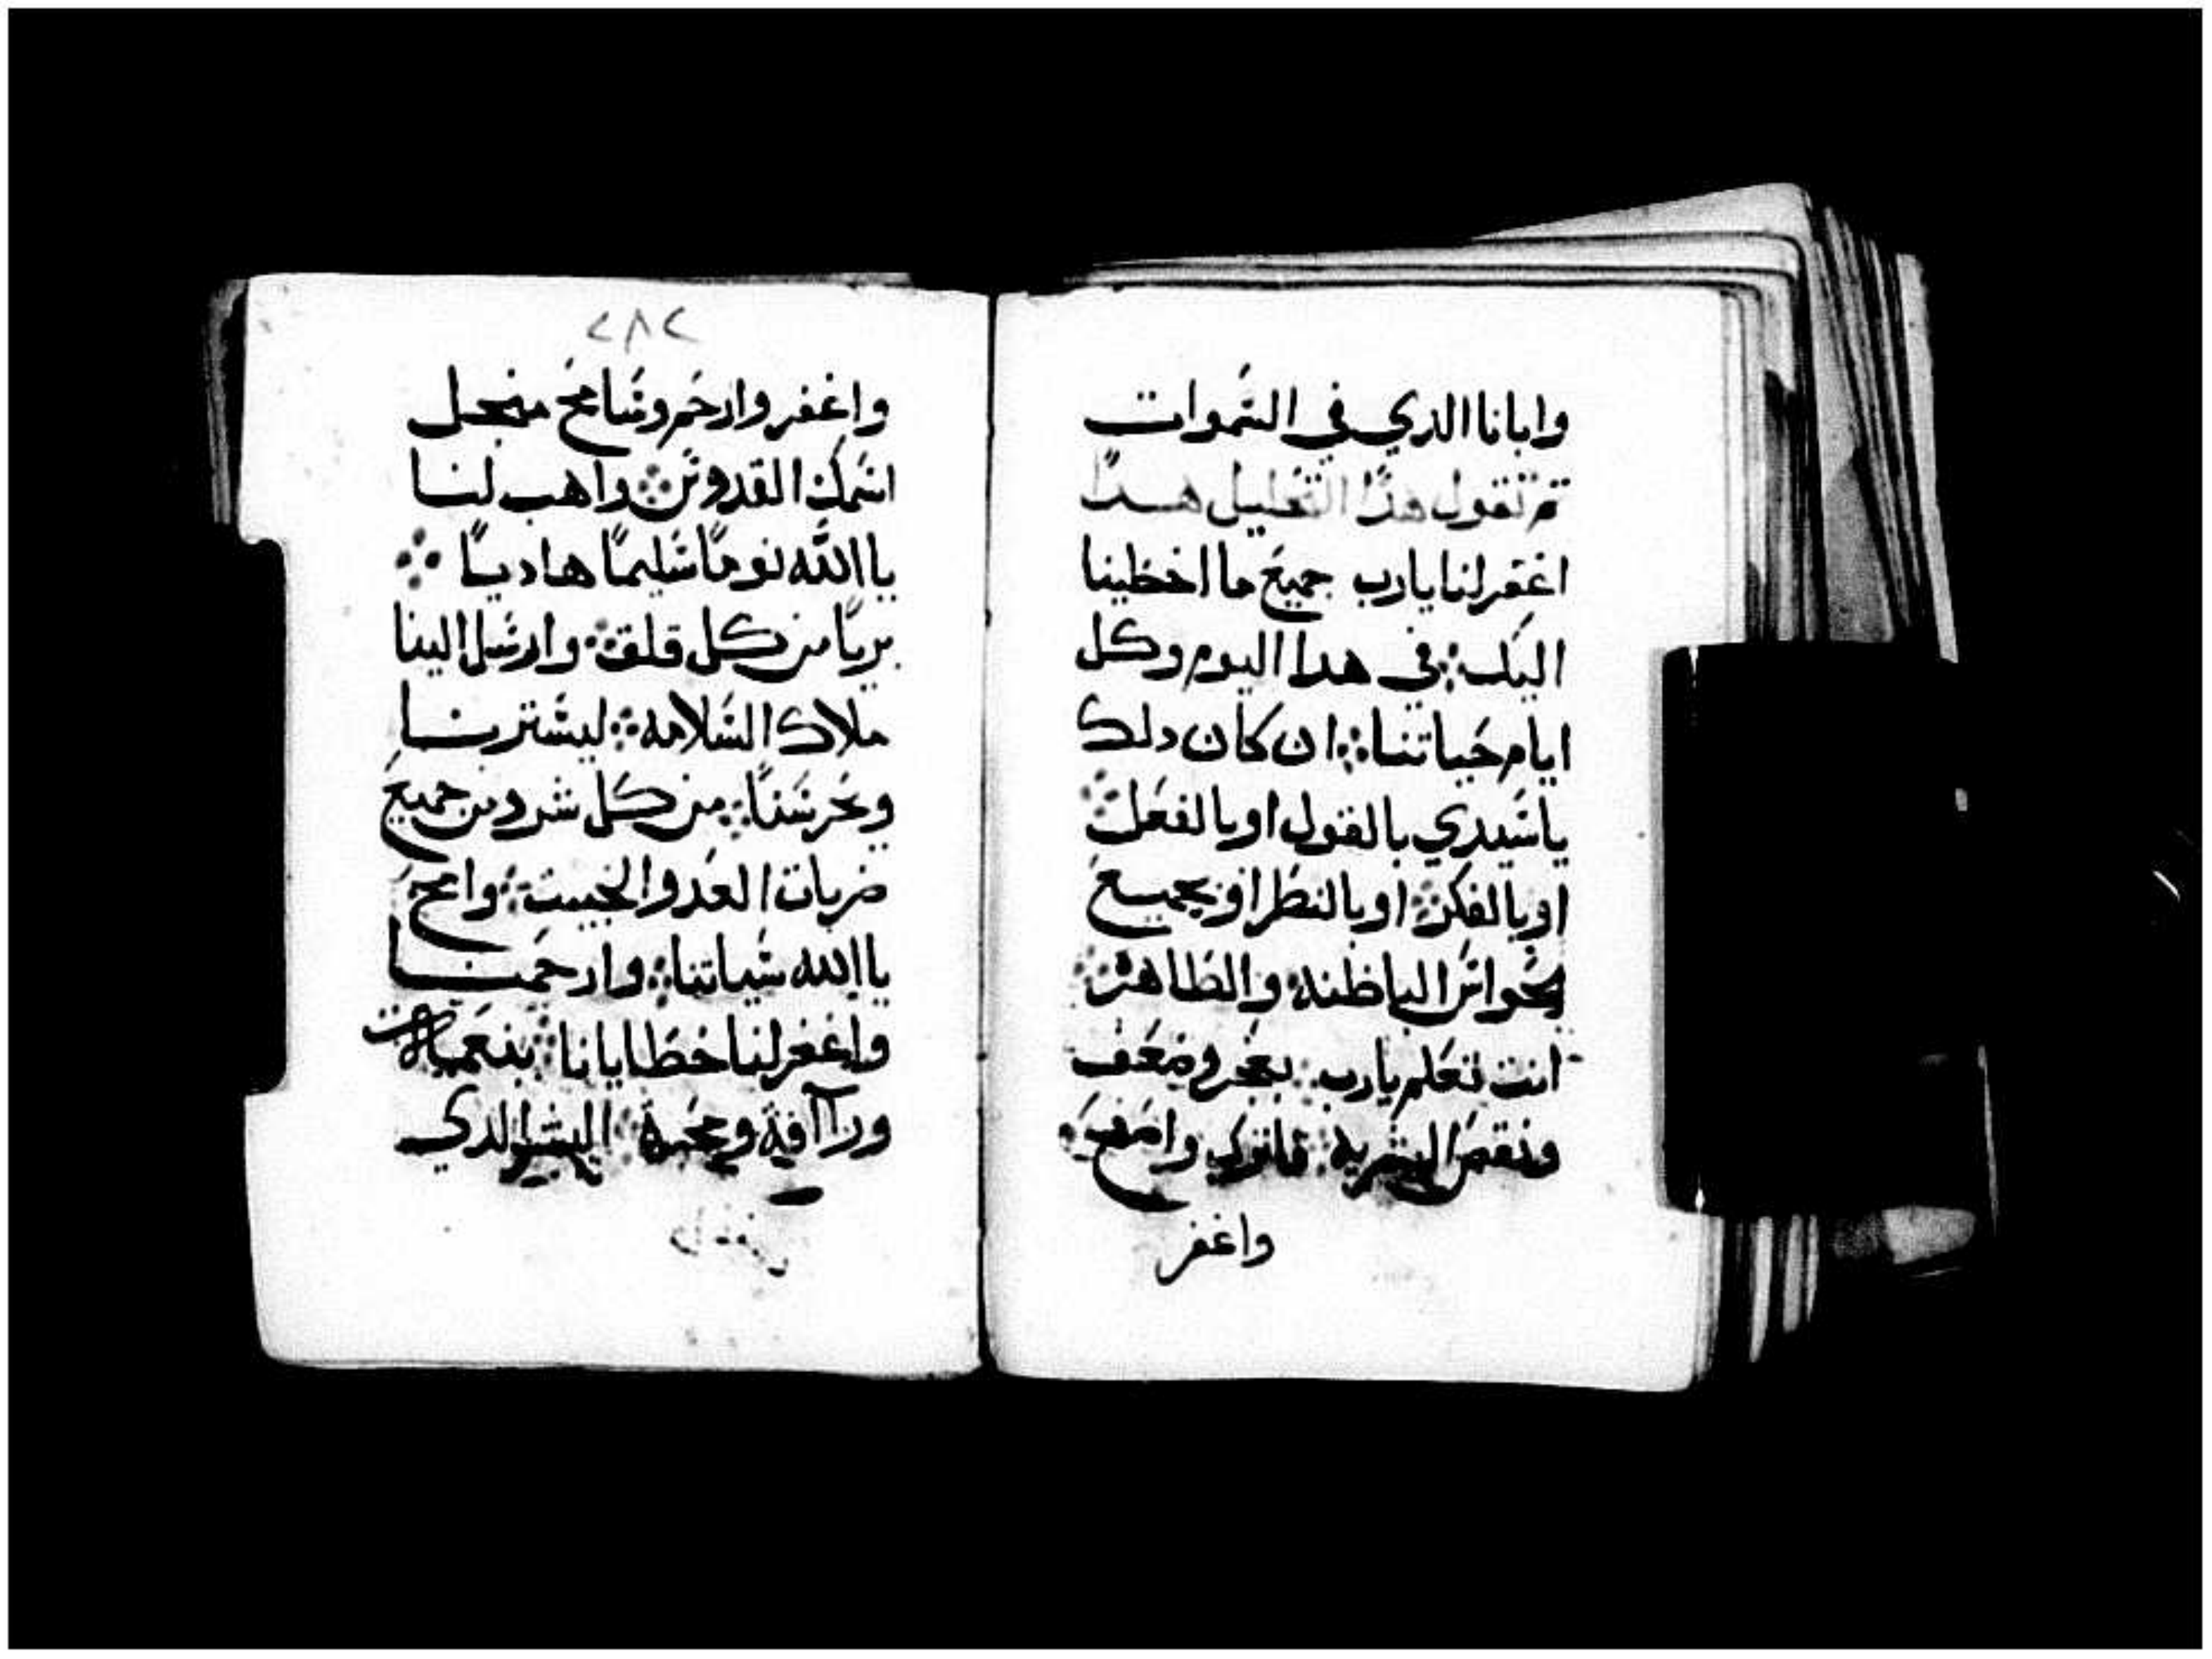 وابانا الدي في السموات
تم تقول هدا التحليل هدا
اغفر لنا يارب جميع ما اخطينا
اليك في هدا اليوم وكل
ايام حياتنا ان كان دلك
ياسيدي بالقول او بالفعل
او بالفكر او بالنظر او بجميع
الحواس الباطنه والظاهره
انت تعلم يارب بعجز وضعف
ونقص البشريه فاترك واصفح
واغفر
٢٨٢
واغفر وارحم وسامح منجل
اسمك القدوس واهب لنا
يا الله نومًا سليمًا هاديًا
بريًا من كل قلق وارسل الينا
ملاك السلامه ليسترنا
ويحرسنا من كل شر ومن جميع
ضربات العدو الخبيت وامح
يا الله سياتنا وارحمنا
واغفر لنا خطايانا بنعمة
ورآافة ومحبة البشر الدي